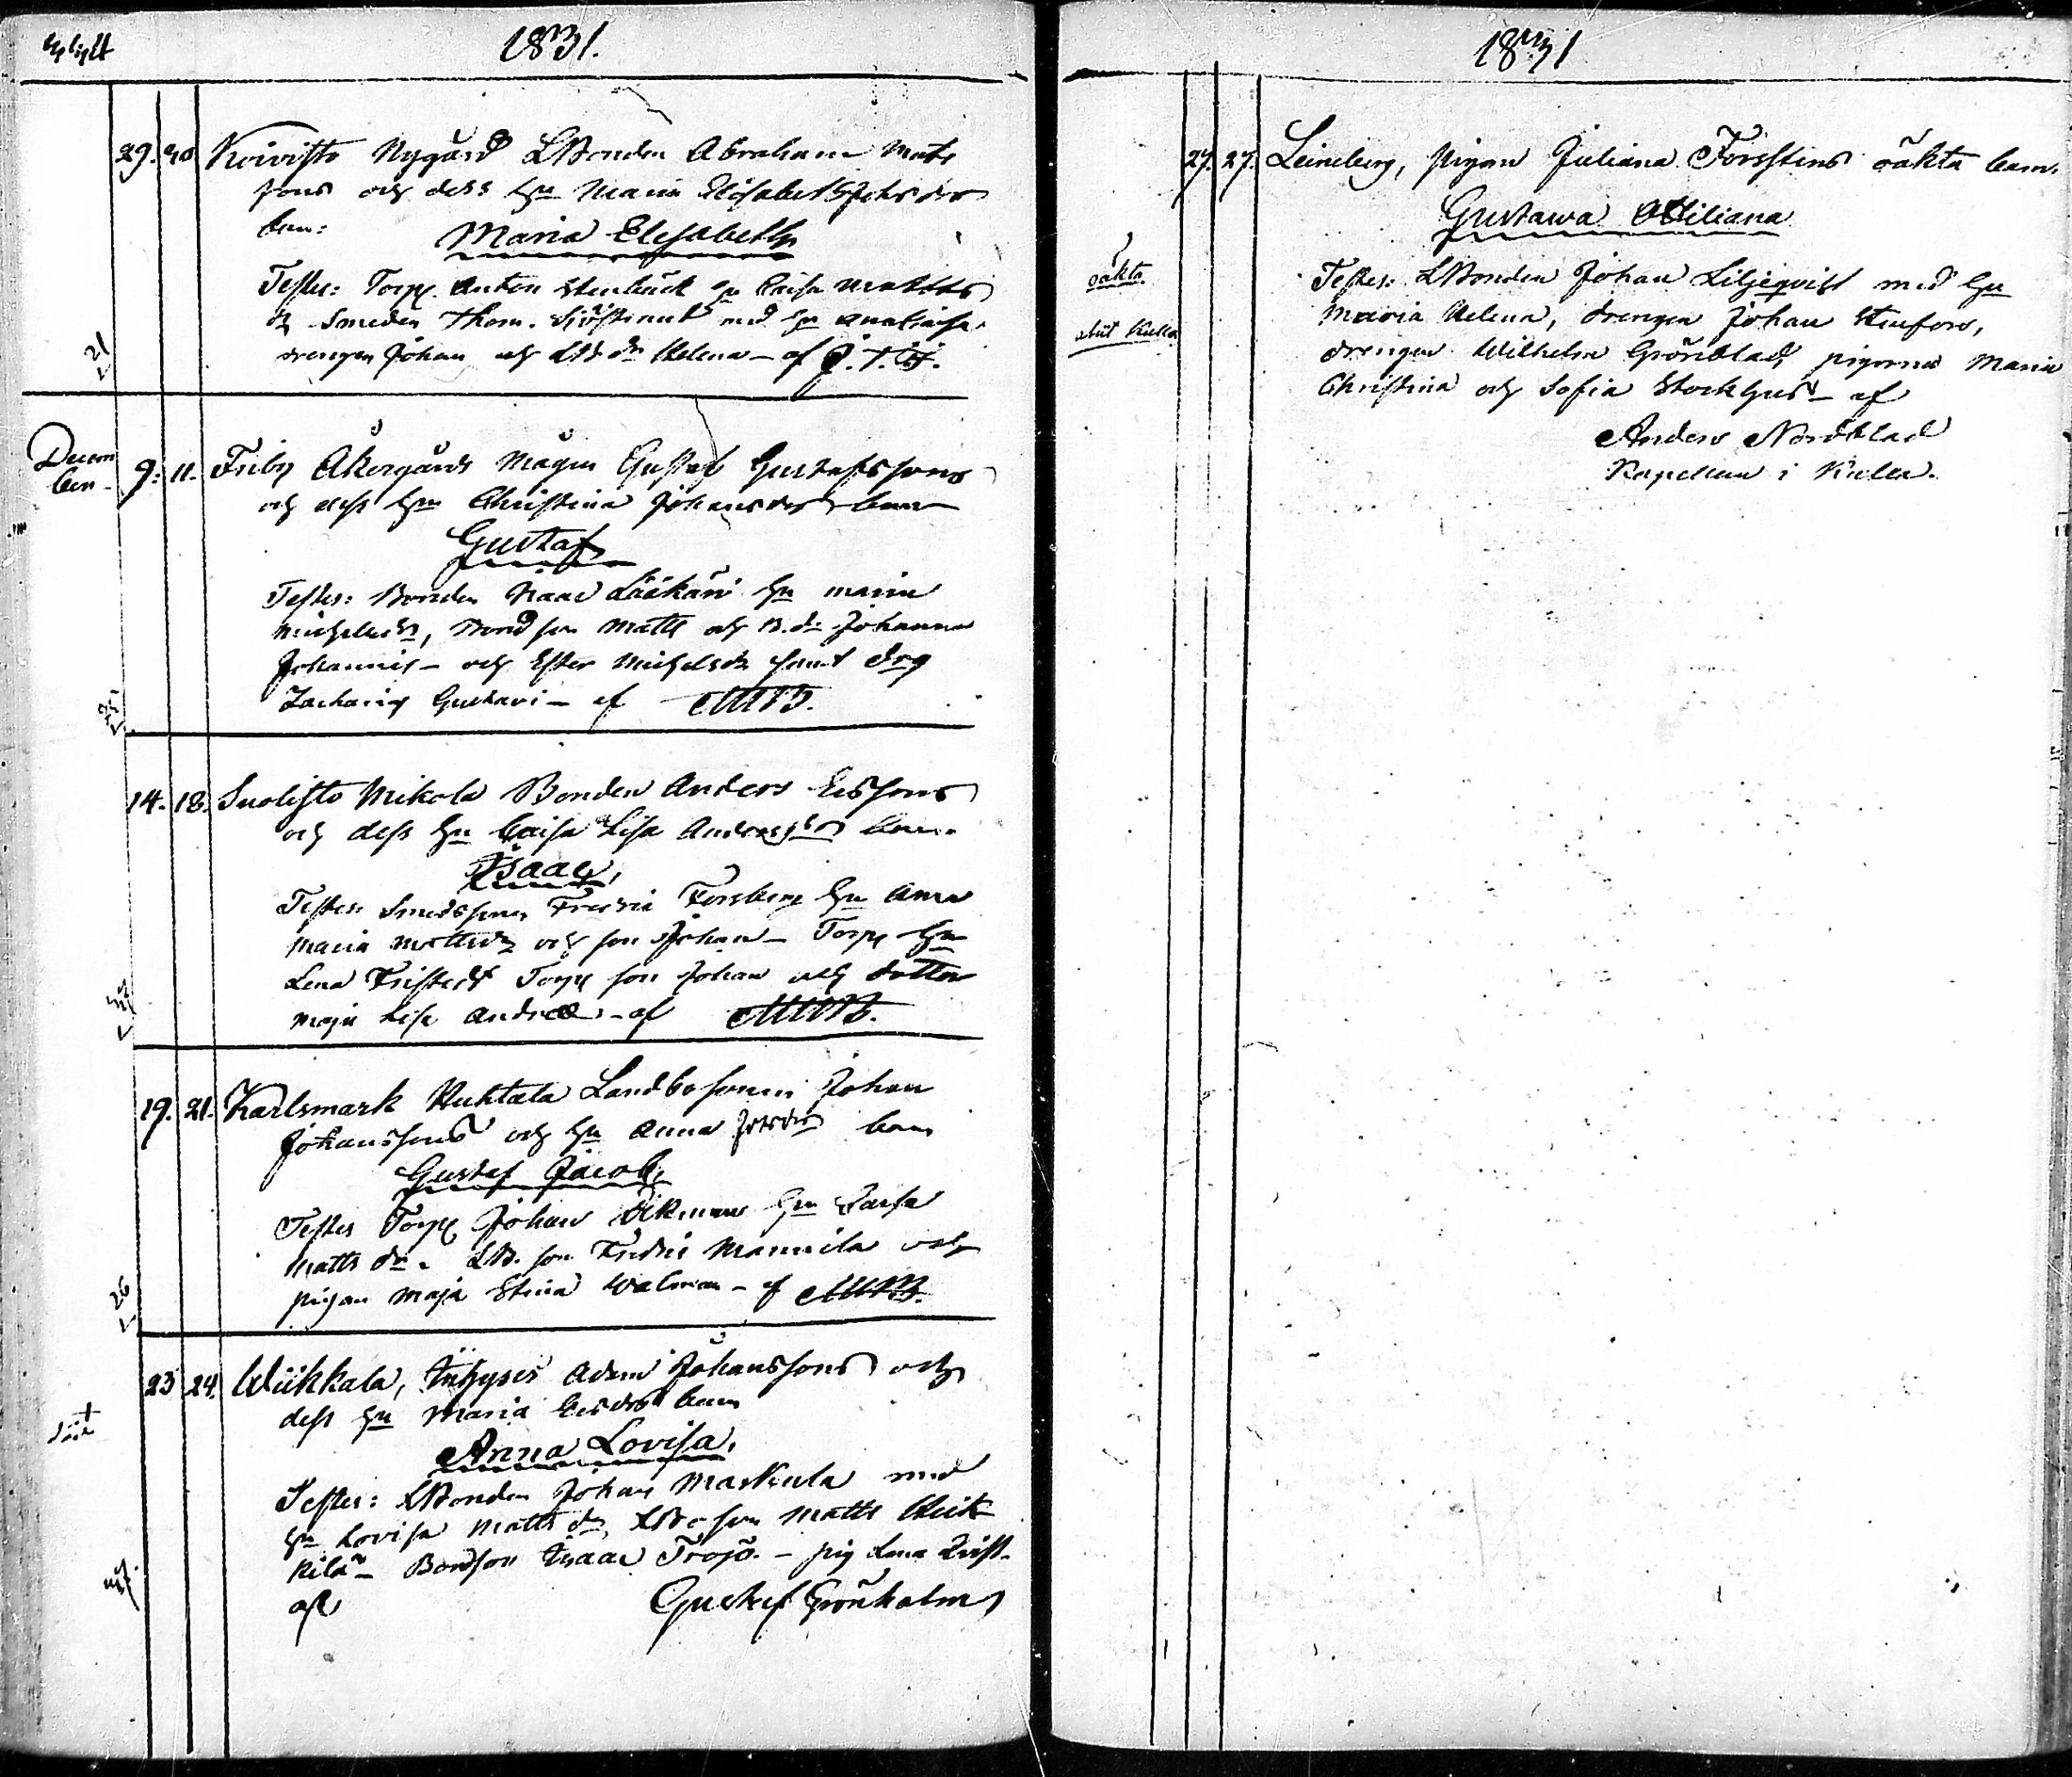 1831.
29. 30. Koivisto Nygård LBonden Abraham Mats
sons och dess hu Maria Elisabet
barn:
Maria Elisabeth
Testes: Torp. Anton Stenbäck hu Caisa Mattsdr
Smeden Thom. med hu
drengen Johan och LB dr Helena - af
21
Decem
ber
9. 11. Friby Åkergårds Mågen Gustaf Gustafssons
och dess hu Christina Johansdrs barn
Gustaf
Testes: Bonden Isaac hu Maria
Michelsdr, Bondson Matts och B.dr Johanna
Johannis - och Ester Michelsdr samt drg
Zacharias Gustavi - af
14. 18. Suolisto Mikola Bonden Anders Ersons
och dess hu Caisa Lisa Andersdrs barn
Isaac,
Testes: Smedssonen Fredric Forsberg hu Anna
Maria Mattsdr och son Johan - Torp hu
Lena Fristedt Torp son Johan och dotter
Maja Lisa Andreæ - af
19. 21. Karlsmark Huhtala Landbosonen Johan
Johanssons och hu Anna barn
Gustaf Jacob
Testes Torp Johan Ekman hu Caisa
Matts dr. LB. son Fredric Mannila och
pigan Maja Stina Walman - af
26
23 24. Wiikkala, Inhyses Adam Johanssons och
dess hu Maria barn
Anna Lovisa.
Testes: LBonden Johan Markula med
hu Lovisa Matts dr, LBoson Matts Heik
kilä - Bondson Isaac Trojo. - pig Lena Qvist.
af Gustaf Grönholm
1831
27. 27. Leineberg, pigan Juliana Forsstens oäkta barn.
Gustawa Otiliana
oäkta
Testes: LBonden Johan Liljeqvist med hu
Maria Helena, drengen Johan Stenfors,
drengen Wilhelm Grönblad, pigorna Maria
Christina och Sofia Stockhus - af
Anders Nordblad
Kapellan i Kulla.